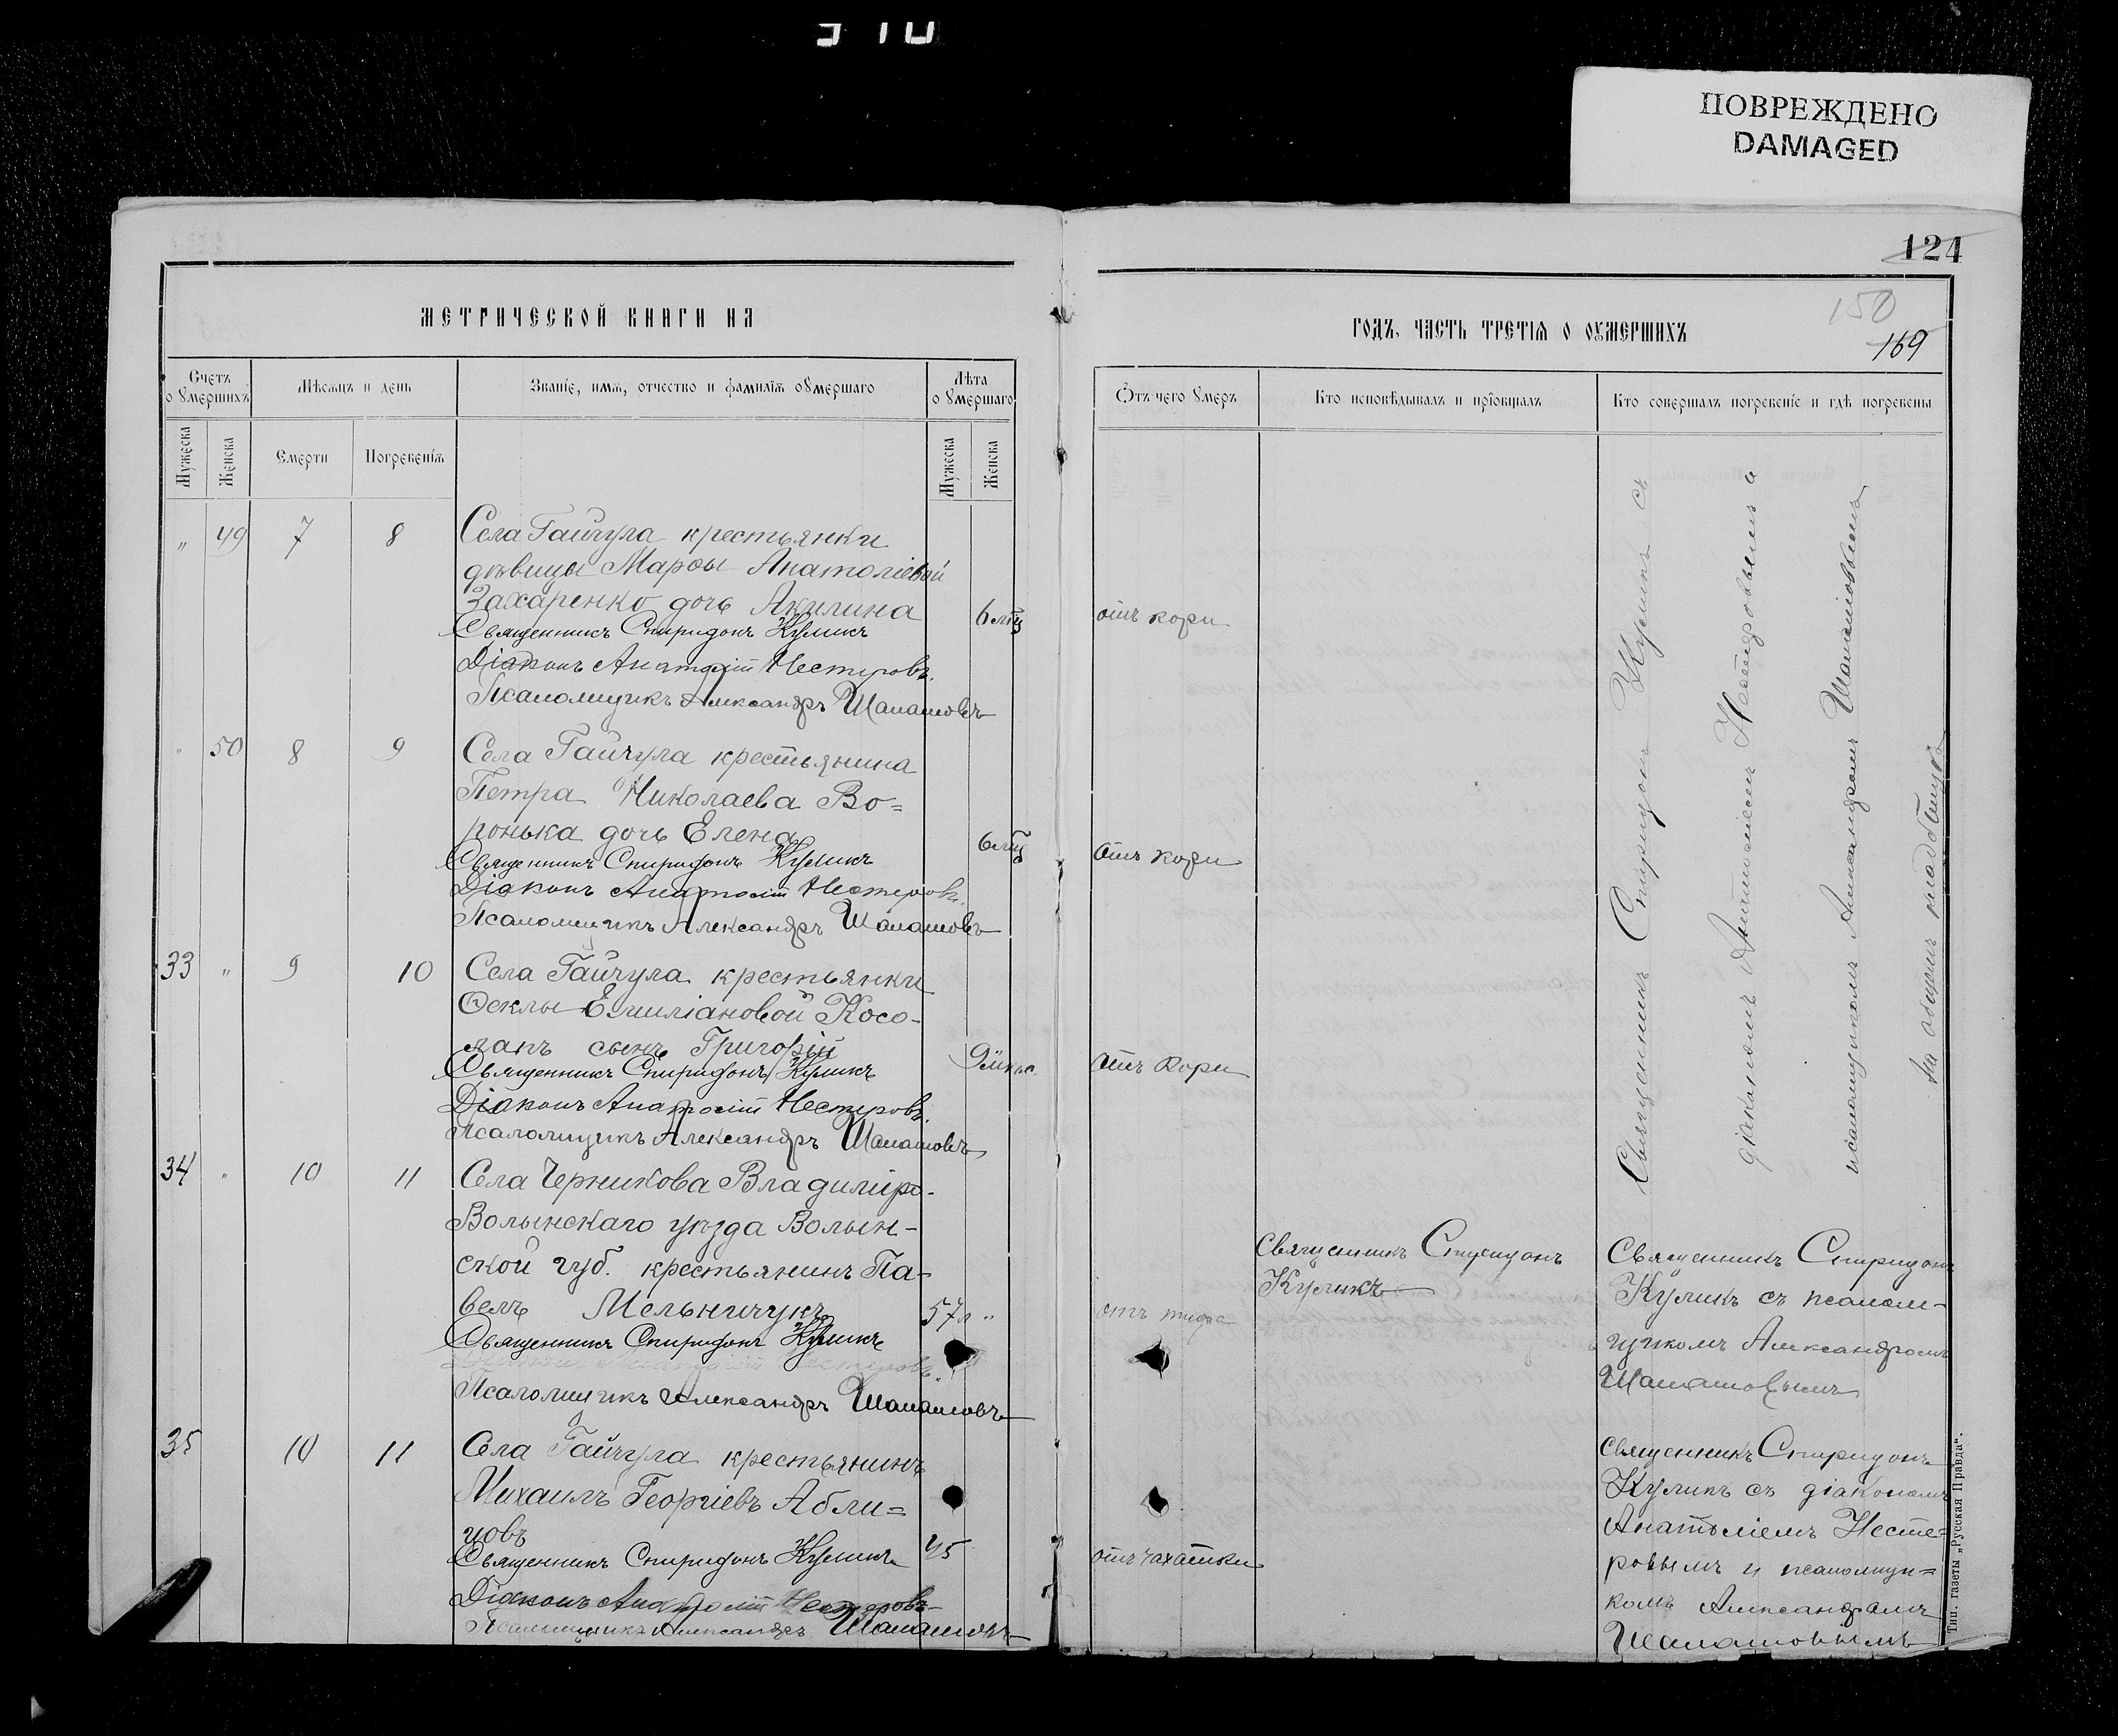 ПОВРЕЖДЕНО
DAMAGED
124
150
169
МЕТРИЧЕСКОЙ КНИГИ НА
ГОДЪ, ЧАСТЬ ТРЕТІѦ О ОУМЕРШИХЪ
Счетъ о Умершихъ
Мѣсяцъ и день
Званіе, имѧ, отчество и фамиліѧ оУмершаго
Лѣта оУмершаго
Отъ чего Умеръ
Кто исповѣдывалъ и пріобщалъ
Кто совершалъ погребеніе и гдѣ погребены
Мужеска
Женска
Смерти
Погребеніѧ
Мужеска
Женска
„ 49 7 8 Села Гайчула крестьянки
дѣвицы Марѳы Анатоліевой
Захаренко дочь Акилина
отъ кори
Священникъ Спиридонъ Куликъ
Діаконъ Анатолій Нестеровъ.
Псаломщикъ Александръ Шаламовъ
„ 50 8 9 Села Гайчула крестьянина
Петра Николаева Во=
ронька дочь Елена
отъ кори
Священникъ Спиридонъ Куликъ
Діаконъ Анатолій Нестеровъ.
Псаломщикъ Александръ Шаламовъ
33 „ 9 10 Села Гайчула крестьянки
Ѳеклы Емиліановой Косо-
лапъ сынъ Григорій
отъ кори
Священникъ Спиридонъ Куликъ
Діаконъ Анатолій Нестеровъ.
Псаломщикъ Александръ Шаламовъ
Священникъ Спиридонъ Куликъ съ
діакономъ Анатоліемъ Нестеровымъ и
псаломщикомъ Александромъ Шаламовымъ
на общемъ кладбищѣ
34 „ 10 11 Села Черникова Владиміро-
Волынскаго уѣзда Волын-
ской губ. крестьянинъ Па-
велъ Мельничукъ 57 л „ отъ тифа
Священникъ Спиридонъ
Куликъ
Священникъ Спиридонъ
Куликъ съ псалом-
щикомъ Александромъ
Шаламовымъ
Священникъ Спиридонъ Куликъ
Псаломщикъ Александръ Шаламовъ
35 10 11 Села Гайчула крестьянинъ
Михаилъ Георгіевъ Абли=
цовъ 45 отъ чахатки
Священникъ Спиридонъ Куликъ
Діаконъ Анатолій Нестеровъ
Псаломщикъ Александръ Шаламовъ
Священникъ Спиридонъ
Куликъ съ діакономъ
Анатоліемъ Несте=
ровымъ и псаломщи=
комъ Александромъ
Шаламовымъ
Тип. газеты „Русская Правда“.